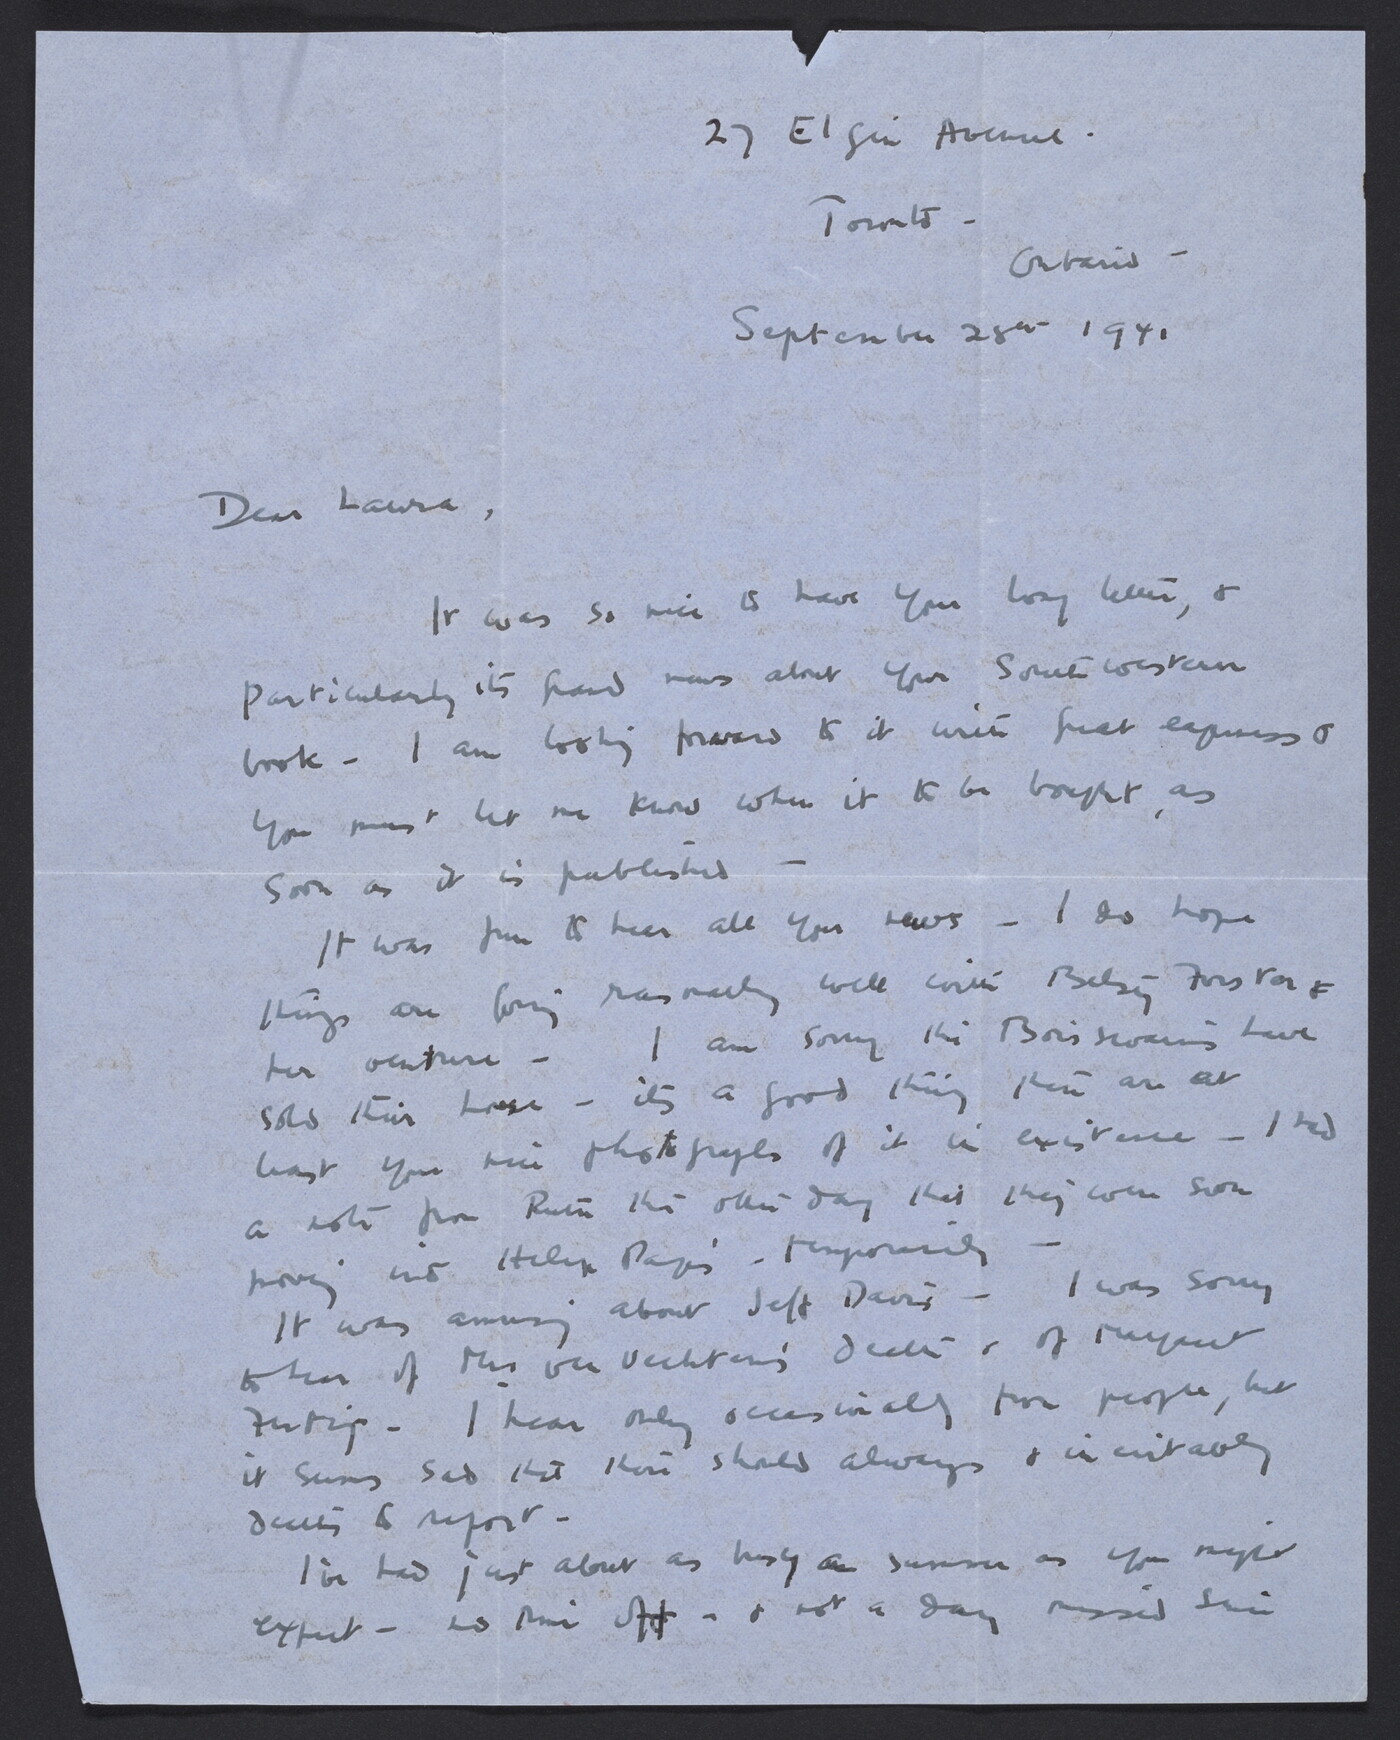 27 Elgin Avenue.
Toronto -
Ontario -
September 28th 1941
Dear Laura,
It was so nice to have your long letter, &
particularly its grand news about your Southwestern
book - I am looking forward to it with great eagerness &
you must let me know when it to be bought, as
soon as it is published -
It was fun to hear all your news - I do hope
things are going reasonably well with Betsy Forster &
her venture - I am sorry the BoisSevains have
sold their house - its a good thing there are at
least your nice photographs of it in existence - I had
a note from Ruth the other day that they were soon
moving into Helen - temporarily -
It was amusing about Jeff Davis - I was sorry
to hear of Mrs van Vechten's death & of Margaret
- I hear only occasionally from people, but
it seems sad that there should always & inevitably
deaths to report -
I've had just about as busy a summer as you might
expect - no time off - & not a day missed since